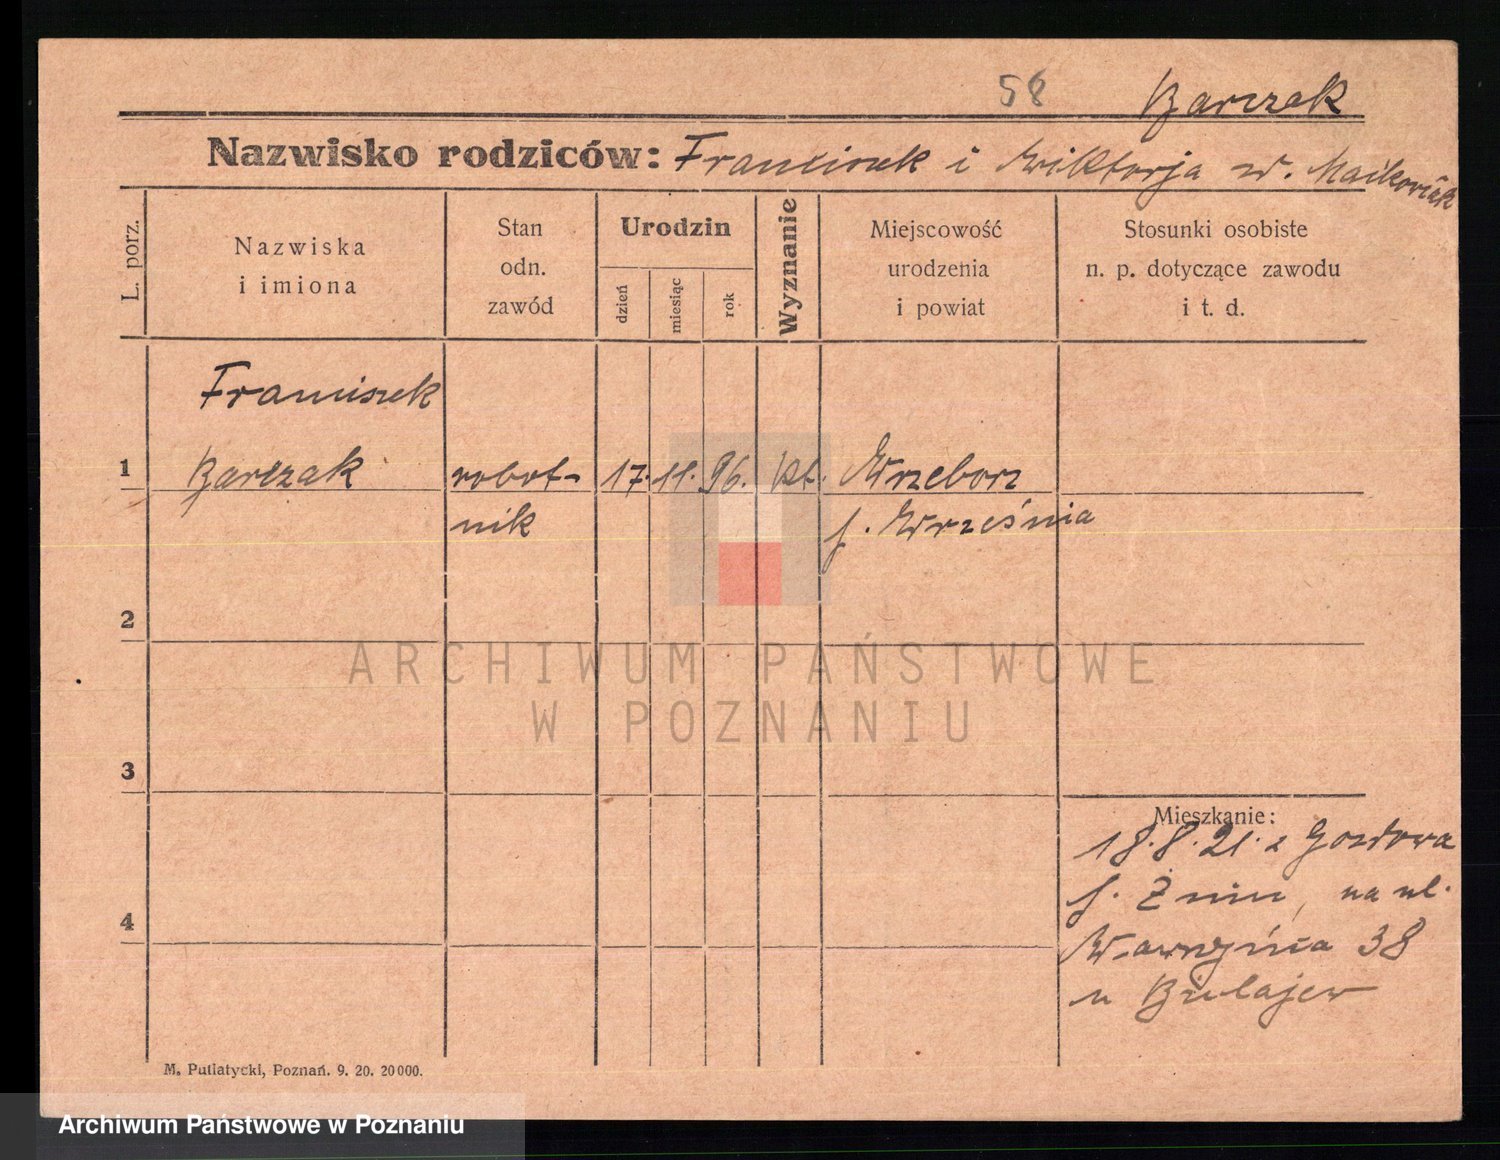 58 Barczak
Nazwisko rodziców: Franciszek i Wiktorja z d.
L. porz.
Nazwiska
i imiona
Stan
odn.
zawód
Urodzin
dzień
miesiąc
rok
Wyznanie
Miejscowość
urodzenia
i powiat
Stosunki osobiste
n. p. dotyczące zawodu
i t. d.
Franciszek
1 Barczak robot- 17. 11. 96. kt.
nik p. Września
2
ARCHIWUM PAŃSTWOWE
W POZNANIU
3
Mieszkanie:
18.8.21. z Gozdowa
p. Żnin, na ul.
Wawrzyńca 38
u
4
M. Putiatycki, Poznań. 9. 20. 20000.
Archiwum Państwowe w Poznaniu